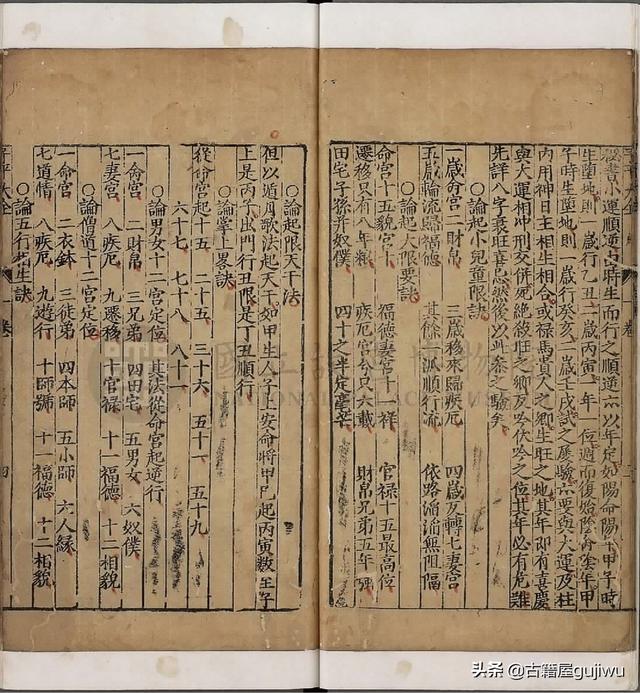 秘書小運順逆占時生而行之順逆亦以年定如陽命陽干甲子時
生墮地則一歲行乙丑二歲丙寅一年一位週而復始陰命癸年甲
子時生墮地則一歲行癸亥二歲壬戌試之屢驗亦要與大運及柱
內用神日主相生相合或祿馬貴人之鄉生旺之地其年即有喜慶
與大運相冲刑交併死絶敗旺之鄉反吟伏吟之位其年必有危難
先詳八字衰旺喜忌然後以此參之驗矣
○論起小兒童限訣
一歲命宮二財帛 三歲移來歸疾厄 四歲反轉七妻宮
五歲輪流歸福德 其餘一派順行流 依路滔滔無阻隔
○論起大限要訣
命宮十五貌宮十 福德妻宮十一祥 官禄十五最高位
遷移只有八年粮 疾厄宮分只六載 財帛兄弟五年強
田宅子孫并奴僕 四十之半定高卒
○論起限天干法
但以遁月歌法起天干如甲生人子上安命將甲巳起丙寅數至子
上是丙子出門行丑限是丁丑順行
○論掌上畧訣
從命宮起十五 二十五 三十六 五十一 五十九
六十七 七十八 八十一
○論男女十二宮定位 其法從命宮起逆行
一命宮 二財帛 三兄弟 四田宅 五男女 六奴僕
七妻宮 八疾厄 九遷移 十官禄 十一福德 十二相貌
○論僧道十二宮定位
一命宮 二衣鉢 三徒弟 四本師 五小師 六人緣
七道情 八疾厄 九遊行 十師號 十一福德 十二相貌
○論五行先生訣
子平大全 一卷 四
头条 @古籍屋gujiwu